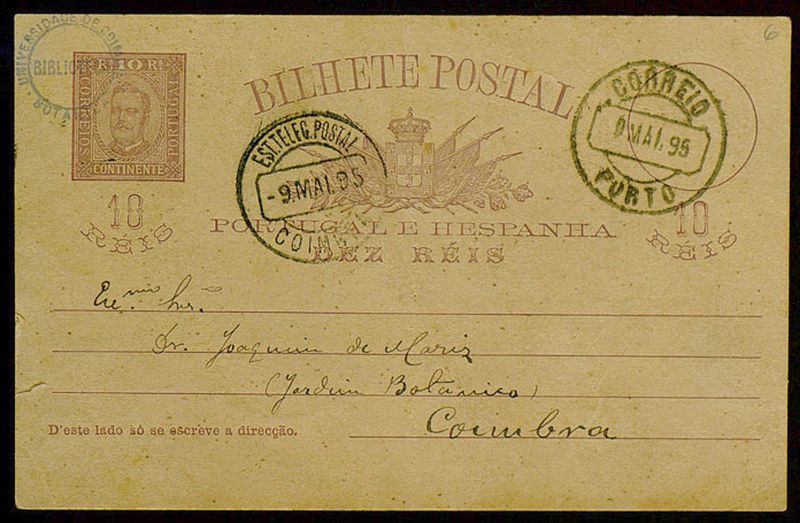 UNIVERSIDADE DE COIM
BIBLIOT
BOTAN
R. 10 R
CORREIOS
PORTUGAL
CONTINENTE
10
RÉIS
BILHETE POSTAL
EST. TELEG. POSTAL
-9. MAI. 95
COIMB
CORREIO
9 MAI. 95
PORTO
6
PORTUGAL E HESPANHA
DEZ RÉIS
10
RÉIS
Exc.mo Snr.
Dr. Joaquim de Mariz
(Jardim Botanico)
D'este lado só se escreve a direcção.
Coimbra